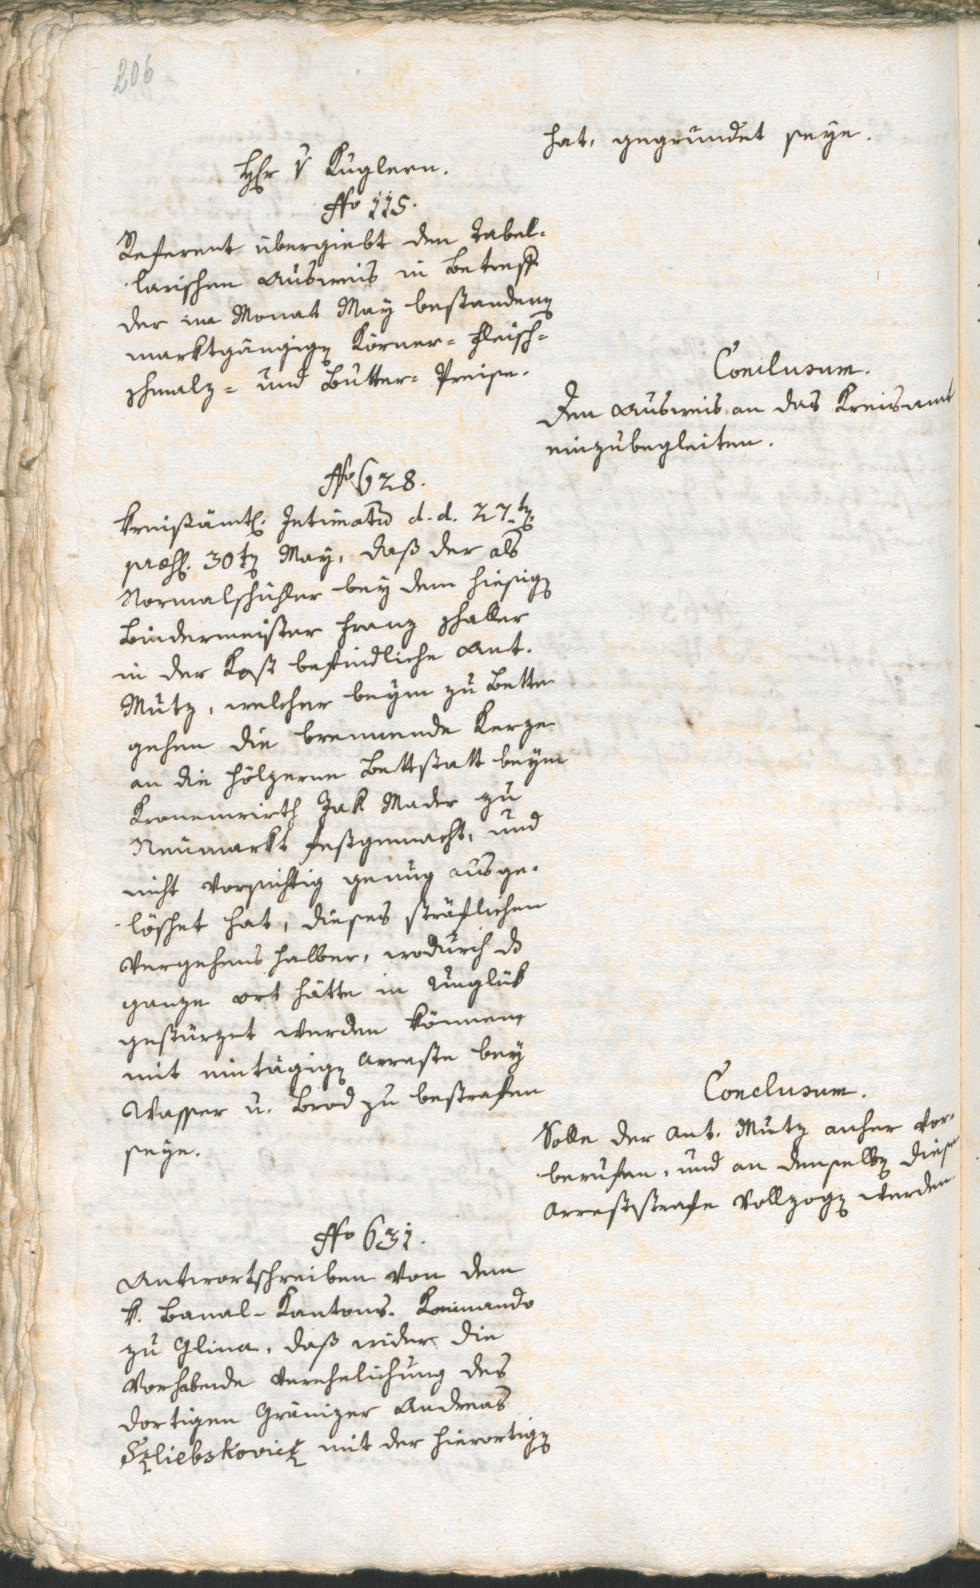 206
hat, gegründet seye.
Hr v Kuglern.
No 115.
Referent übergiebt den Tabel-
larischen Ausweis in Betreff
der im Monat May bestandeng
marktgängigen Körner- Fleisch-
schmalz- und Butter- Preise.
Conclusum.
Den Ausweis an das Kreisamt
einzubegleiten.
No 628.
Kreisämtl. Intimatum d. d. 27ten
praes. 30ten May, daß der als
Normalschühler bey dem hiesigen
Bindermeister Franz Schaller
in der Kost befindliche Ant.
Mutz, welcher beym zu Bette
gehen die brennende Kerze
an die hölzerne Bettstatt beym
Kronenwirth Jak Mader zu
Neumarkt festgemacht, und
nicht vorsichtig genug ausge-
löschet hat, dieses sträflichen
Vergehens halber, wodurch ds
ganze Ort hätte in Unglük
gestürzet werden können,
mit eintägigen Arreste bey
Wasser u. Brod zu bestrafen
seye.
Conclusum.
Solle der Ant. Mutz anher vor-
berufen, und an denselben diese
Arreststrafe vollzogen werden
No 631.
Antwortschreiben von dem
k. Banal-Kantons-Kommando
zu Glina, daß wider die
vorhabende Verehelichung des
dortigen Gränizer Andreas
Szliebskovich mit der hierortigen